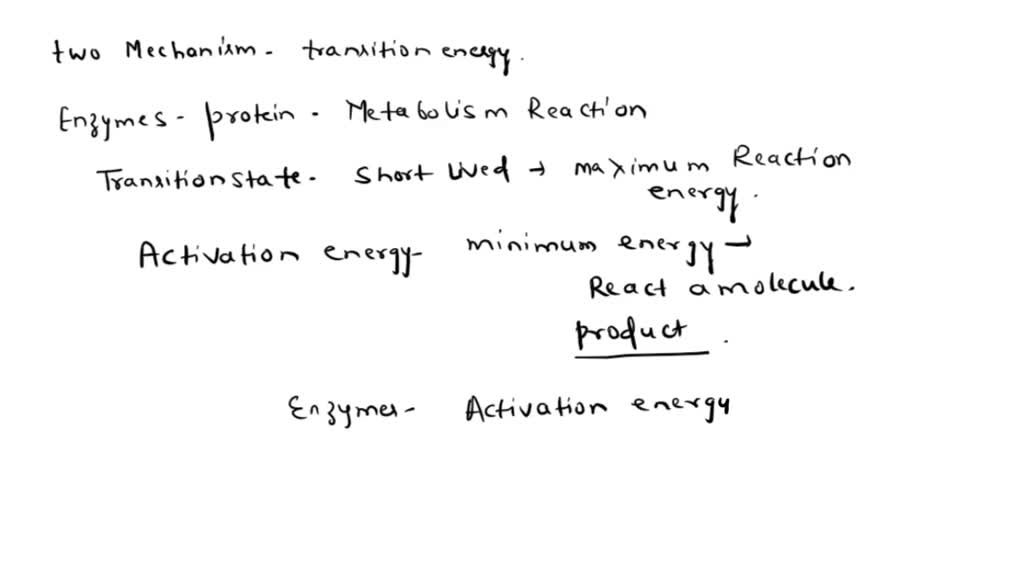 two Mechanism - transition energy.
Enzymes - protein - Metabolism Reaction
Transition state - Short lived → maximum Reaction
energy.
Activation energy - minimum energy →
React a molecule.
product.
Enzymes - Activation energy